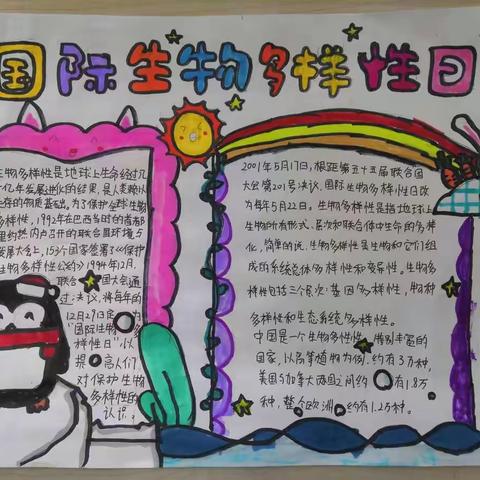 国际生物多样性日
生物多样性是地球上生命经过几
十几年发展进化的结果,是人类赖以
生存的物质基础,为了保护全球生物
多样性,1992年在巴西当时的首都
里约热内卢召开的联合国环境与
发展大会上,153个国家签署了《保护
生物多样性公约》1994年12月,
联合国大会通
过:决议,将每年的
12月29日定为
"国际生物
多样性日",以
提高人们
对保护生物
多样性的
认识.
2001年5月17日,根距第五十五届联合国
大会第201号决议,国际生物多样性日改
为每年5月22日。生物多样性是指地球上
生物所有形式、层次和联合体中生命的多样
化,简单的说,生物多样性是生物和它们组
成的系统总体多样性和变异性。生物多
样性包括三个层次:基因多样性,物种
多样性和生态系统多样性。
中国是一个生物多样性特别丰富的
国家,以高等植物为例.约有3万种,
美国与加拿大两国之间约有1.8万
种,整个欧洲约有1.2万种。